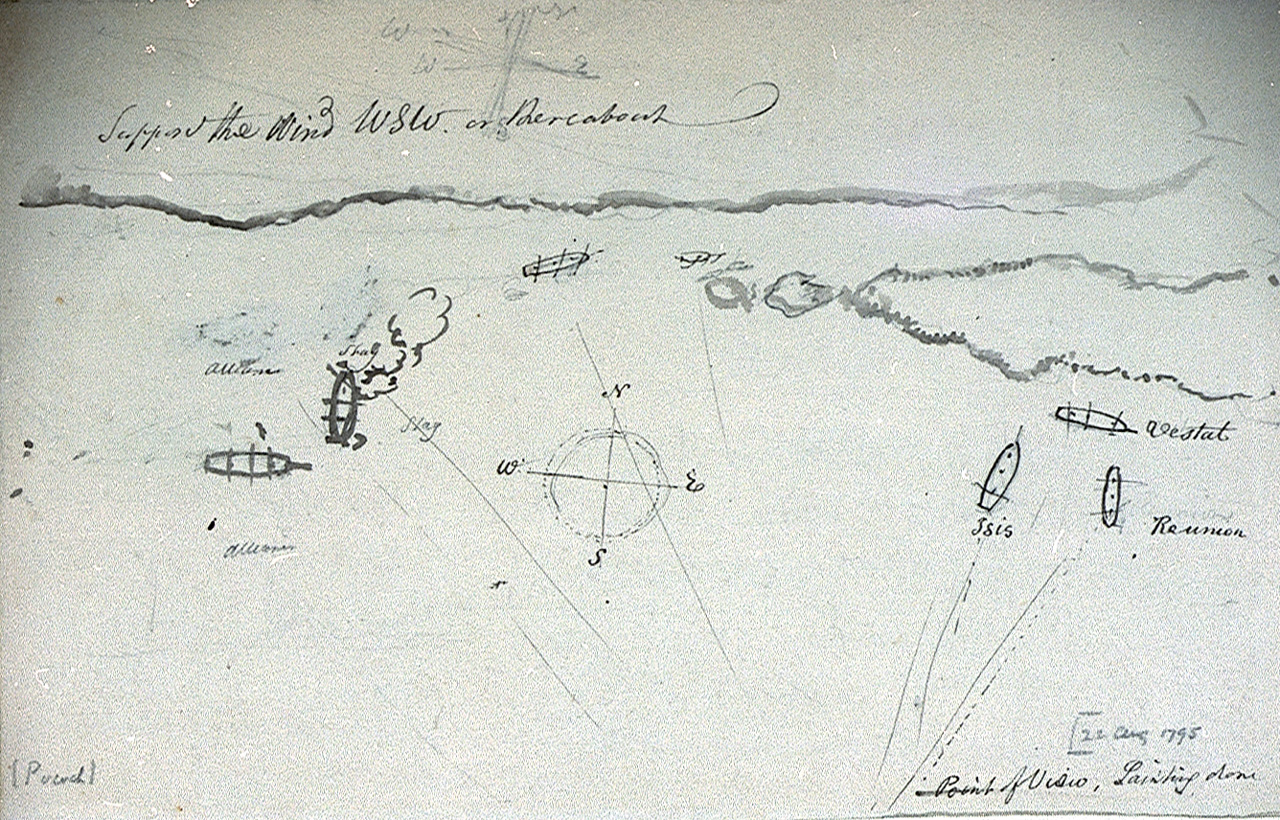 W
W E
Suppos'd the Wind WSW. or thereabout
Stag
Alliance
Stag
N
W E
S
Vestal
Isis
Reunion
Alliance
[22 Aug 1795
[Pocock]
Point of View, Painting done